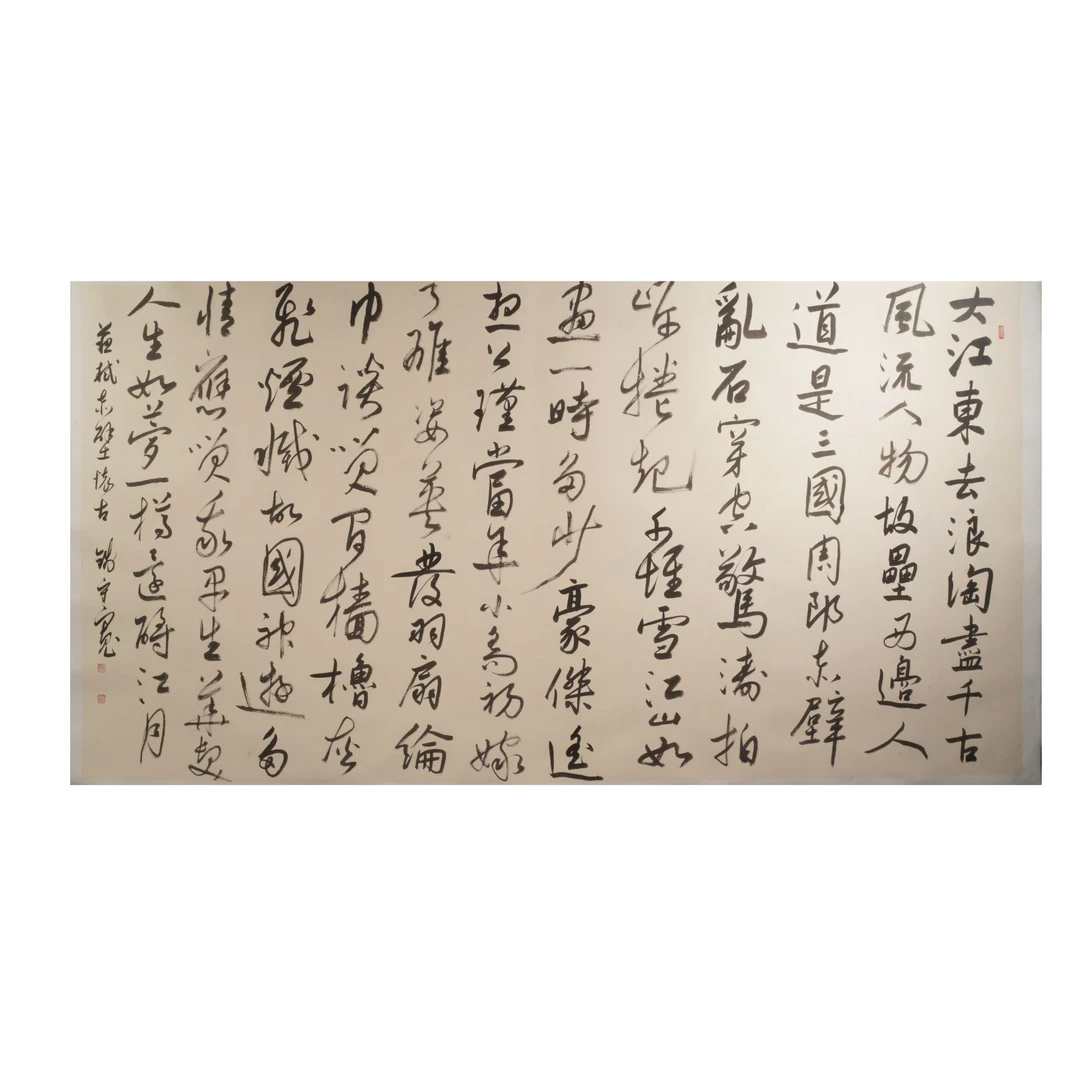 大江東去浪淘盡千古
風流人物故壘西邊人
道是三國周郎赤壁
亂石穿空驚濤拍
岸捲起千堆雪江山如
畫一時多少豪傑遙
想公瑾當年小喬初嫁
了雄姿英發羽扇綸
巾談笑間檣櫓灰
飛煙滅故國神遊多
情應笑我早生華髮
人生如夢一樽還酹江月
蘇軾赤壁懷古 守寬